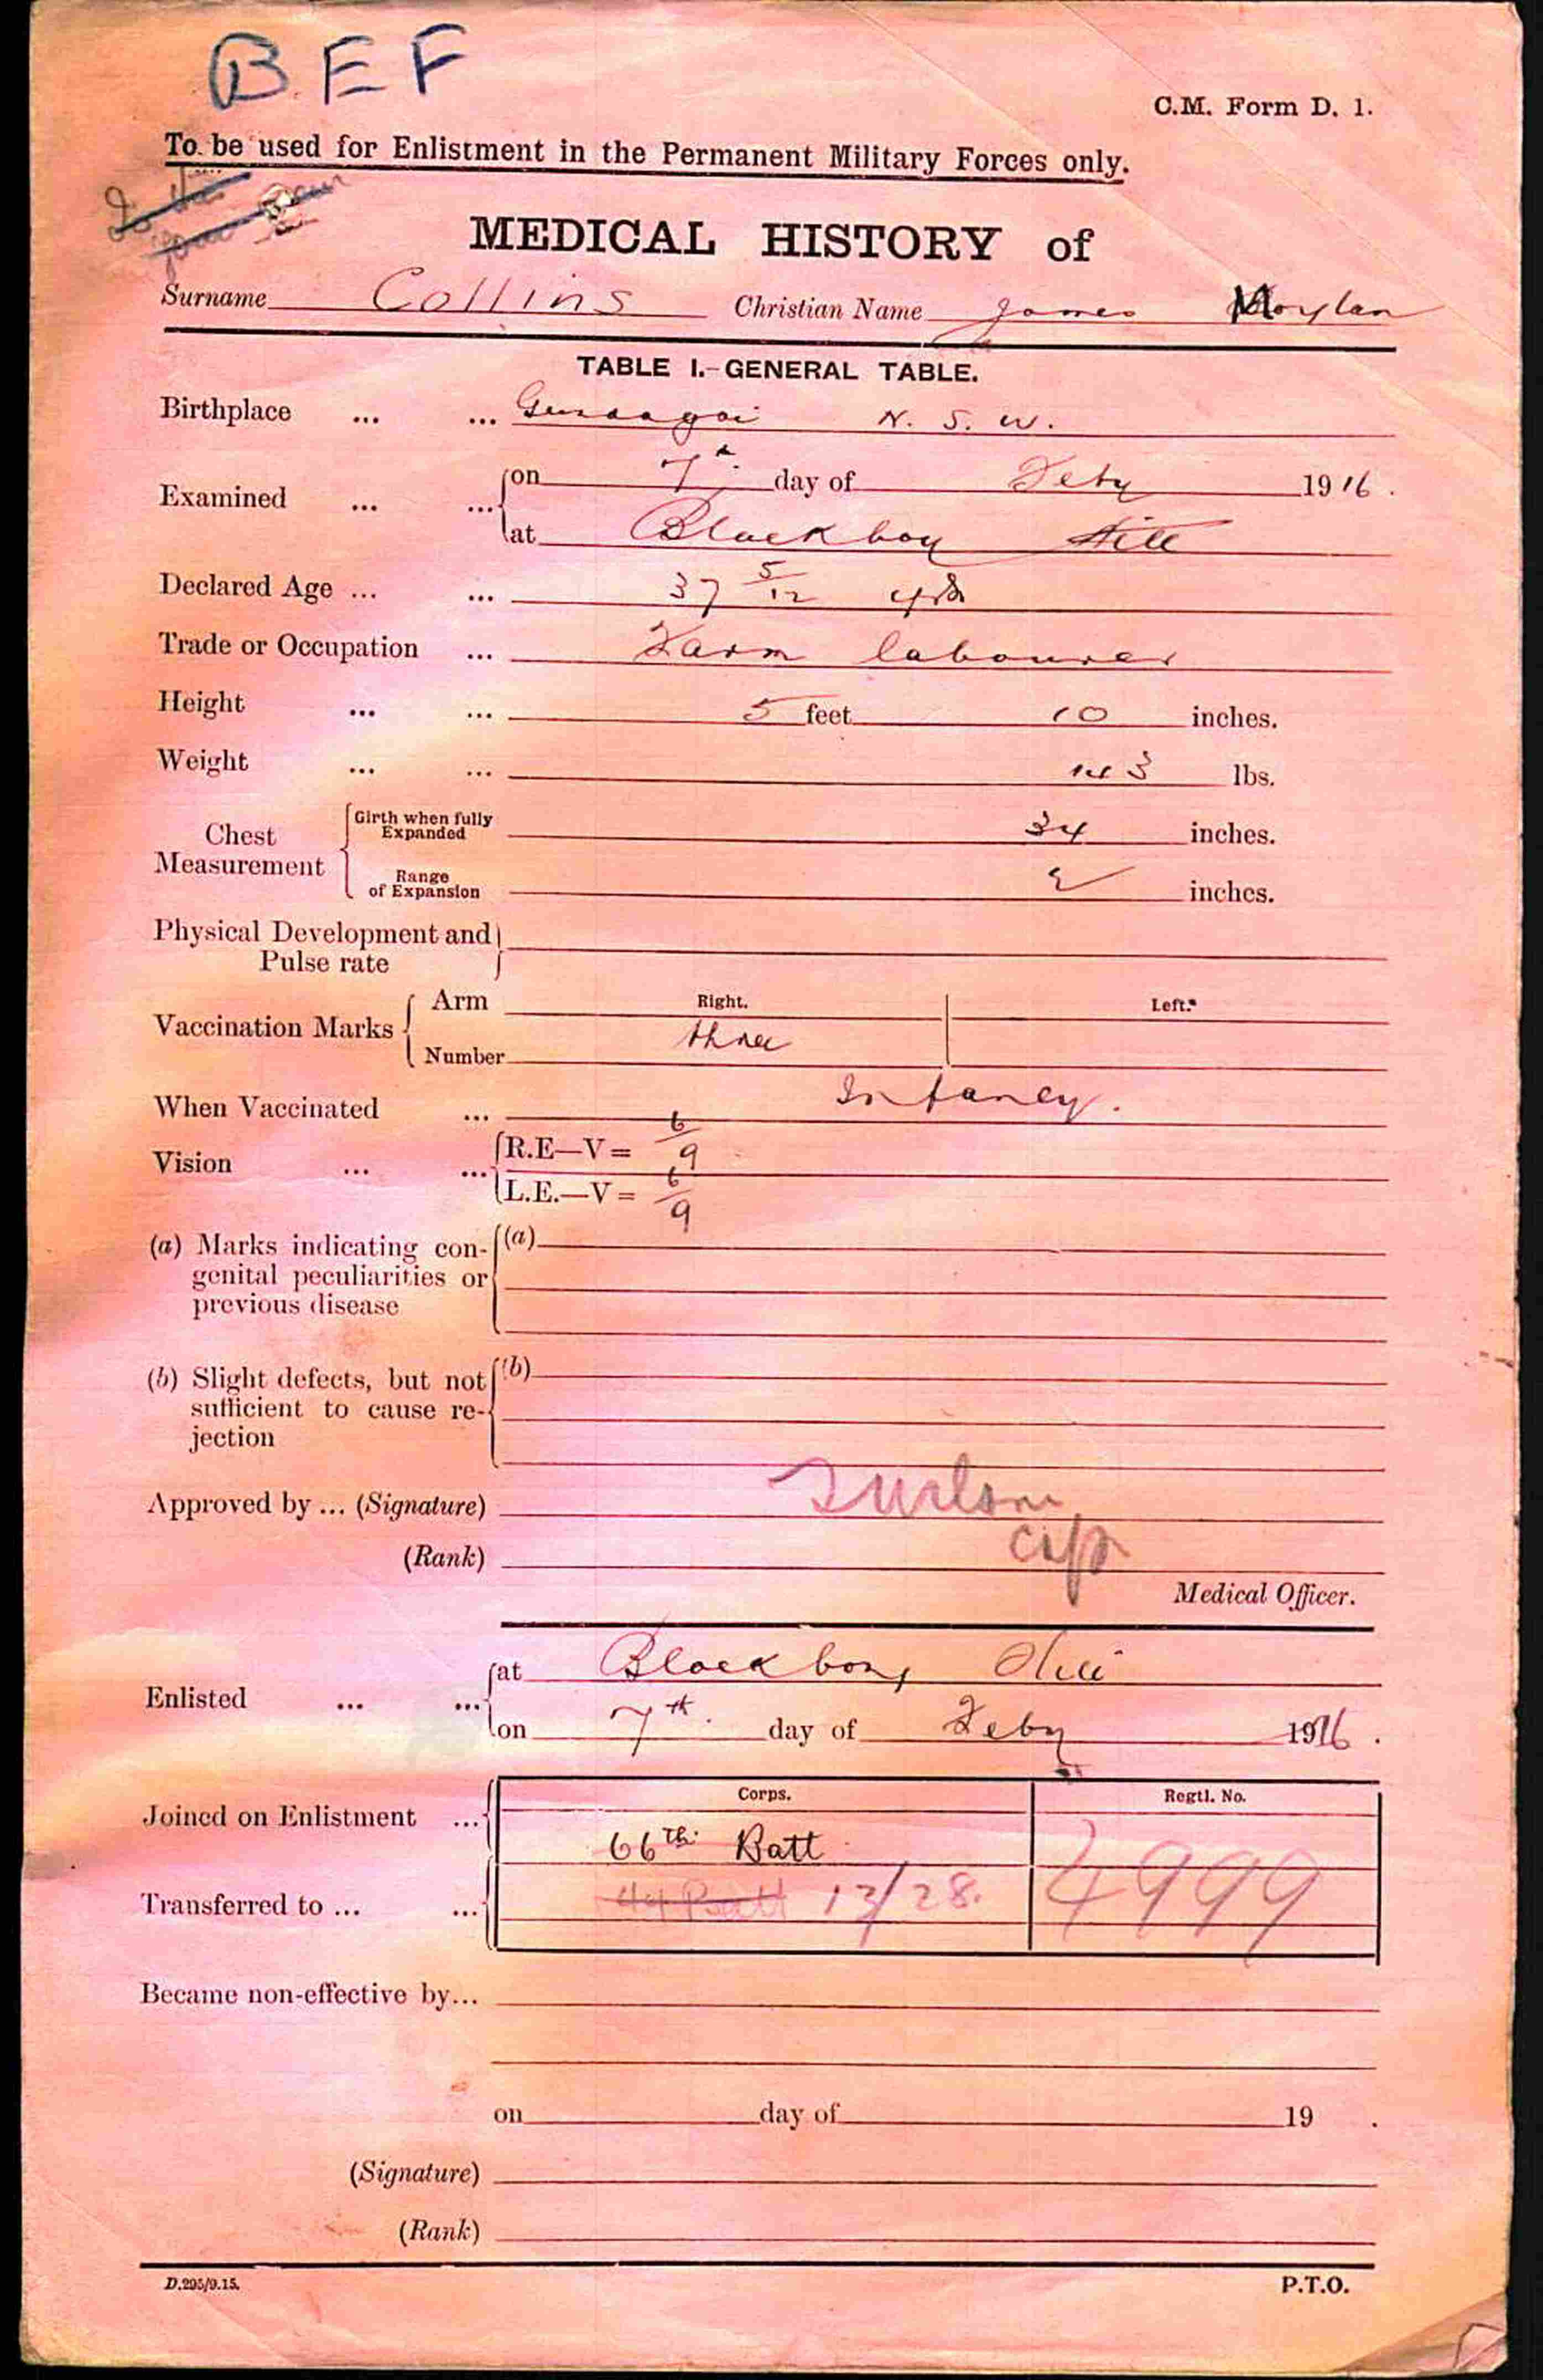 BEF
C.M. Form D. 1.
To be used for Enlistment in the Permanent Military Forces only.
MEDICAL HISTORY of
Surname Collins Christian Name James Moylan
TABLE I.-GENERAL TABLE.
Birthplace ... ... Gundagai N. S. W.
Examined ... ... on 7th day of Feby 1916.
at Blackboy Hill
Declared Age ... ... 37 5/12 yrs
Trade or Occupation ... Farm labourer
Height ... ... 5 feet 10 inches.
Weight ... ... 143 lbs.
Chest Measurement Girth when fully Expanded 34 inches.
Range of Expansion 2 inches.
Physical Development and Pulse rate
Vaccination Marks Arm Right. Left.
Number three
When Vaccinated ... Infancy.
Vision ... ... R.E—V = 6/9
L.E.—V = 6/9
(a) Marks indicating con- (a)
genital peculiarities or
previous disease
(b) Slight defects, but not (b)
sufficient to cause re-
jection
Approved by ... (Signature)
(Rank) Cap
Medical Officer.
Enlisted ... ... at Blackboy Hill
on 7th. day of Feby 1916.
Corps. Regtl. No.
Joined on Enlistment ... 66th Batt
Transferred to ... ... 44 Batt 12/28. 4999
Became non-effective by...
on day of 19 .
(Signature)
(Rank)
D.295/9.15. P.T.O.